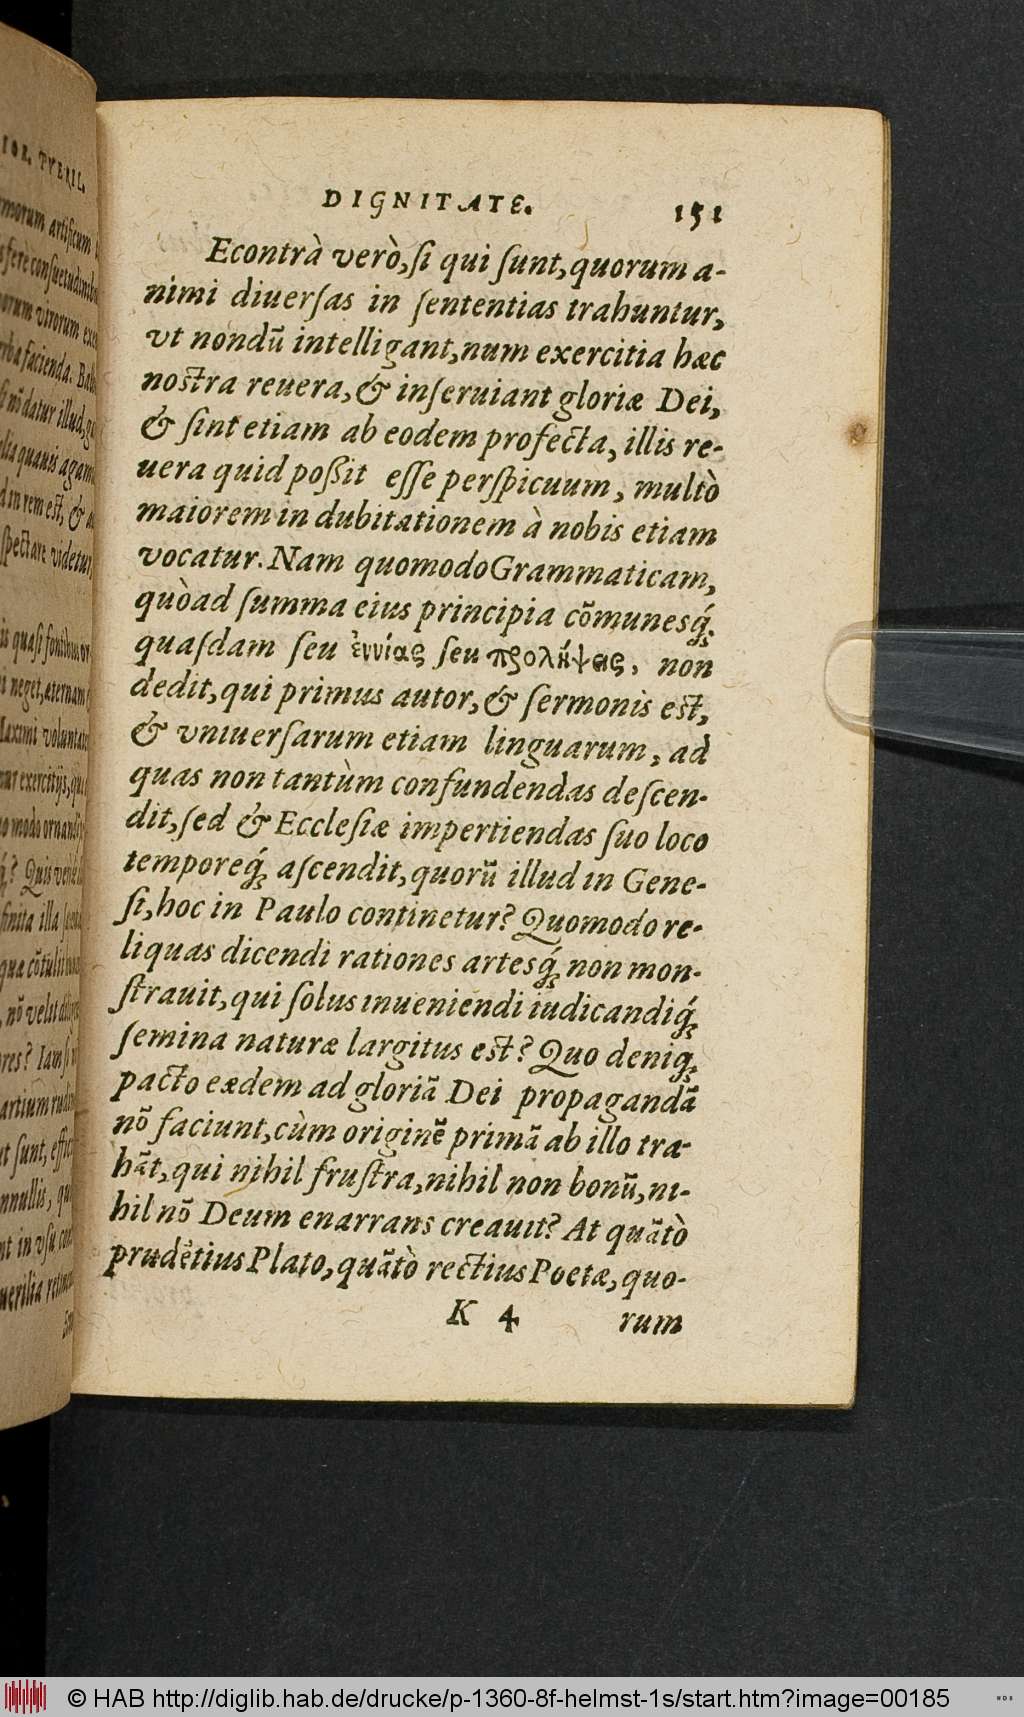 IOR. PVERIL.
DIGNITATE. 151
Econtrà verò, ſi qui ſunt, quorum a-
nimi diuerſas in ſententias trahuntur,
vt nondū intelligant, num exercitia hæc
noſtra reuera, & inſeruiant gloriæ Dei,
& ſint etiam ab eodem profecta, illis re-
uera quid poßit eſſe perſpicuum, multò
maiorem in dubitationem à nobis etiam
vocatur. Nam quomodo Grammaticam,
quòad ſumma eius principia cōmunesq́;
quaſdam ſeu ἐννίας ſeu προλήψεις, non
dedit, qui primus autor, & ſermonis eſt,
& vniuerſarum etiam linguarum, ad
quas non tantùm confundendas deſcen-
dit, ſed & Eccleſiæ impertiendas ſuo loco
temporeq́; aſcendit, quorū illud in Gene-
ſi, hoc in Paulo continetur? Quomodo re-
liquas dicendi rationes artesq́; non mon-
ſtrauit, qui ſolus inueniendi iudicandiq́;
ſemina naturæ largitus eſt? Quo deniq;
pacto eædem ad gloriā Dei propagandā
nō faciunt, cùm originē primā ab illo tra-
hāt, qui nihil fruſtra, nihil non bonū, ni-
hil nō Deum enarrans creauit? At quātò
prudētius Plato, quātò rectius Poetæ, quo-
K 4 rum
© HAB http://diglib.hab.de/drucke/p-1360-8f-helmst-1s/start.htm?image=00185